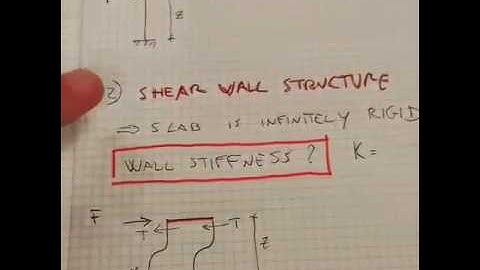 z
2) SHEAR WALL STRUCTURE
⇒ SLAB IS INFINITELY RIGID
WALL STIFFNESS ? K =
F T T z